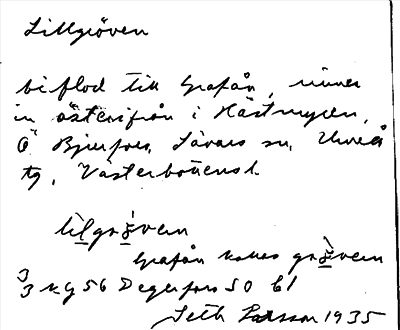 Lillgröven
biflod till Grafån, rinner
in österifrån i Hästmyren,
Ö Bjurfors, Sävars sn, Umeå
tg, Västerbottens l.
lìlgrö̀ven
Grafån kallas grö̀ven
33 Kg 56 Degerfors SO bl
Seth Larsson 1935